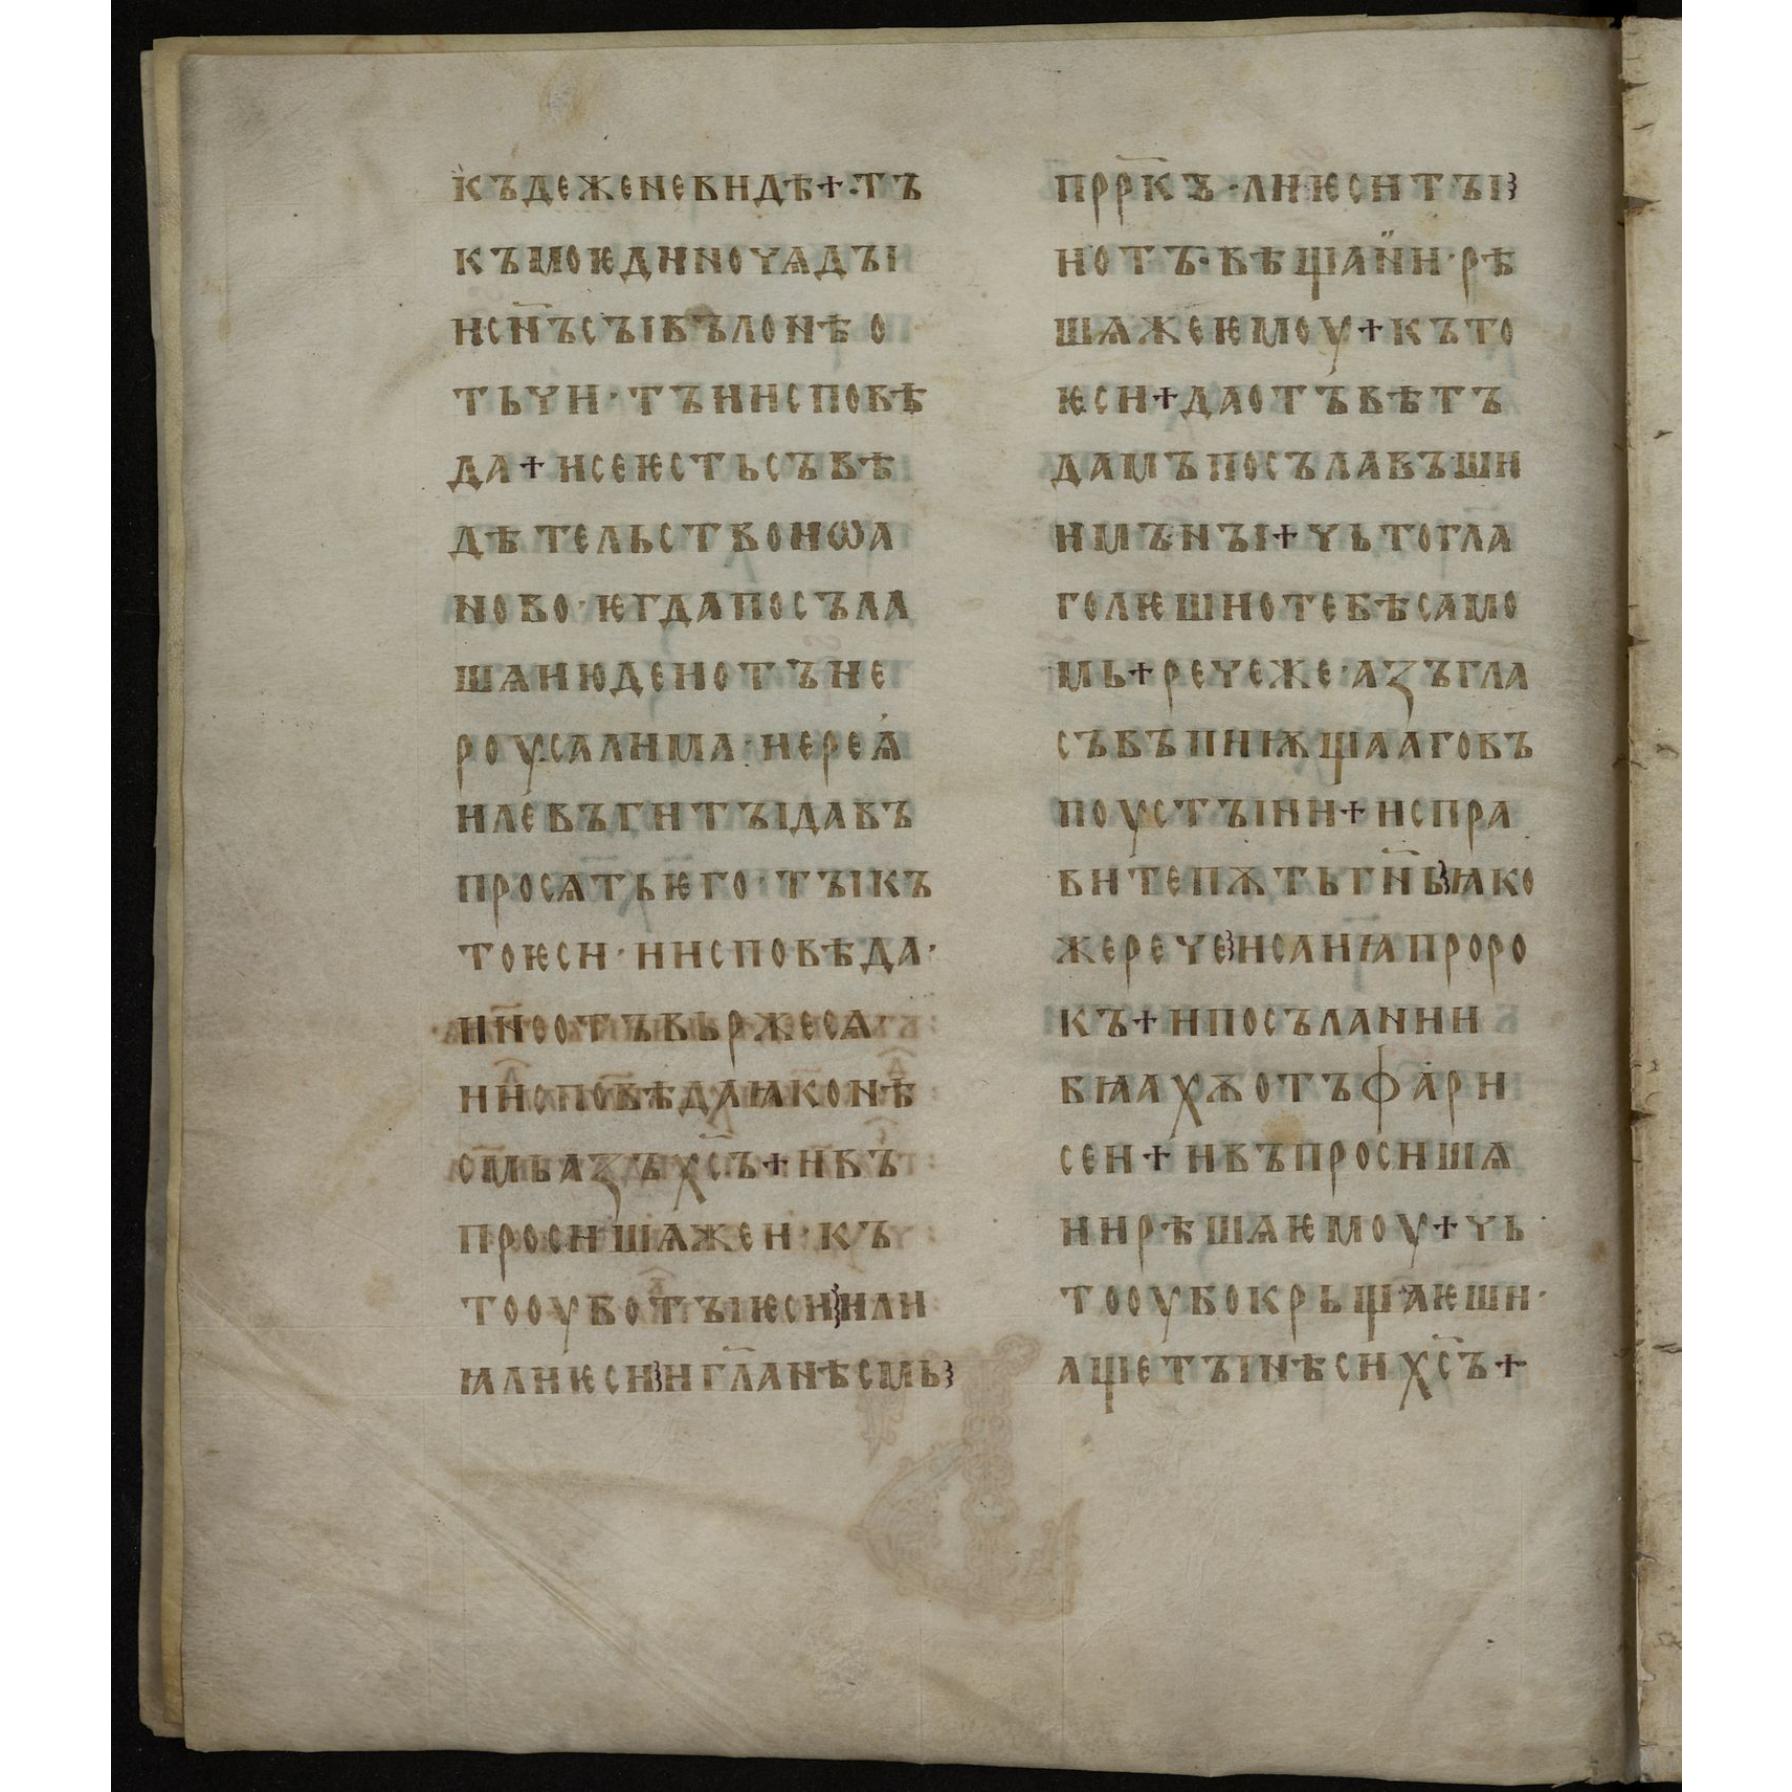 къдеженевидѣ+·тъ
къмоѥдиночѧдꙑи
исн҃ъсꙑвълонѣо
тьчи·тъиисповѣ
да+исеѥстьсъвѣ
дѣтельствоиѡа
ново·ѥгдапосъла
шѧиюдеиотъие
роусалима·иереѧ
илевъгитꙑдавъ
просѧтьѥго·тꙑкъ
тоѥси·иисповѣда·
ин҃еотъвьржесѧ
иисповѣдаꙗконѣ
смьазъхс҃ъ+ивъ
просишѧжеи·къ
тооуботꙑѥсиꙁили
ꙗлиѥсиꙁигл҃анѣсмьꙁ
прр҃къ·лиѥситꙑꙁ
иотъ·вѣщаи·рѣ
шѧжеѥмоу+къто
ѥси+даотъвѣтъ
дамъпосълавъши
имънꙑ+чьтогла
голѥшиотебѣсамо
мь+речеже·азъгла
съвъпиѭщааговъ
поустꙑни+испра
витепѫтьгн҃ьꙁꙗко
жеречеꙁисаиꙗпроро
къ+ипосълании
бꙗахѫотъфари
сеи+ивъпросишѧ
иирѣшѧѥмоу+чь
тооубокрьщаѥши·
ащетꙑнѣсихс҃ъ+